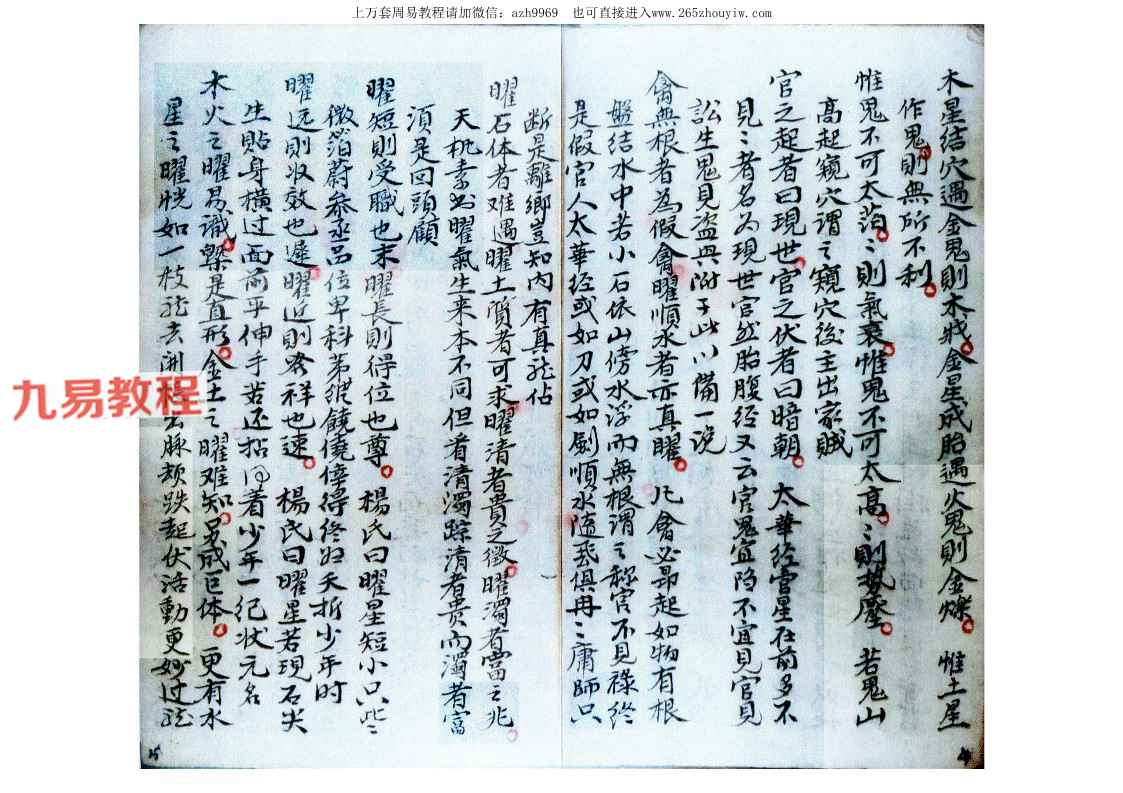 上万套周易教程请加微信：azh9969　也可直接进入www.265zhouyiw.com
木星結穴遇金鬼則木戕金星成胎遇火鬼則金爍　惟土星
作鬼則無所不利
惟鬼不可太蕩〻則氣衰惟鬼不可太高〻則勢壓　若鬼山
高起窺穴謂之窺穴後主出家賊
官之起者曰現世官之伏者曰暗朝　太華经官星在前多不
見〻者名为現世官然胎腹经又云官鬼宜隐不宜見官見
訟生鬼見盜興附于此以備一说
禽無根者為假禽曜順水者亦真曜　凡禽必昂起如物有根
盤结水中若小石依山傍水浮而無根謂之称官不見禄终
是假官人太華经或如刀或如劍順水隨飛俱冉〻庸師只
断是離鄉豈知内有真龙佔
曜石体者难遇曜土質者可求曜清者貴之徵曜濁者富之兆
天机素书曜氣生来本不同但看清濁踪清者贵而濁者富
須是回頭顧
曜短則受職也末曜長則得位也尊　楊氏曰曜星短小只些〻
微茫蔚参丞而位卑科茅縱饒僥倖得终妇夭折少年时
曜远則收效也遲曜近則发祥也速　楊氏曰曜星若現石尖
生貼身橫过面前乎伸手若还招得着少年一纪状元名
木火之曜易識槩是直形金土之曜难知另成巨体　更有水
星之曜恍如一枝龙去開出脉頡跌起伏活動更妙过龙
九易教程
15